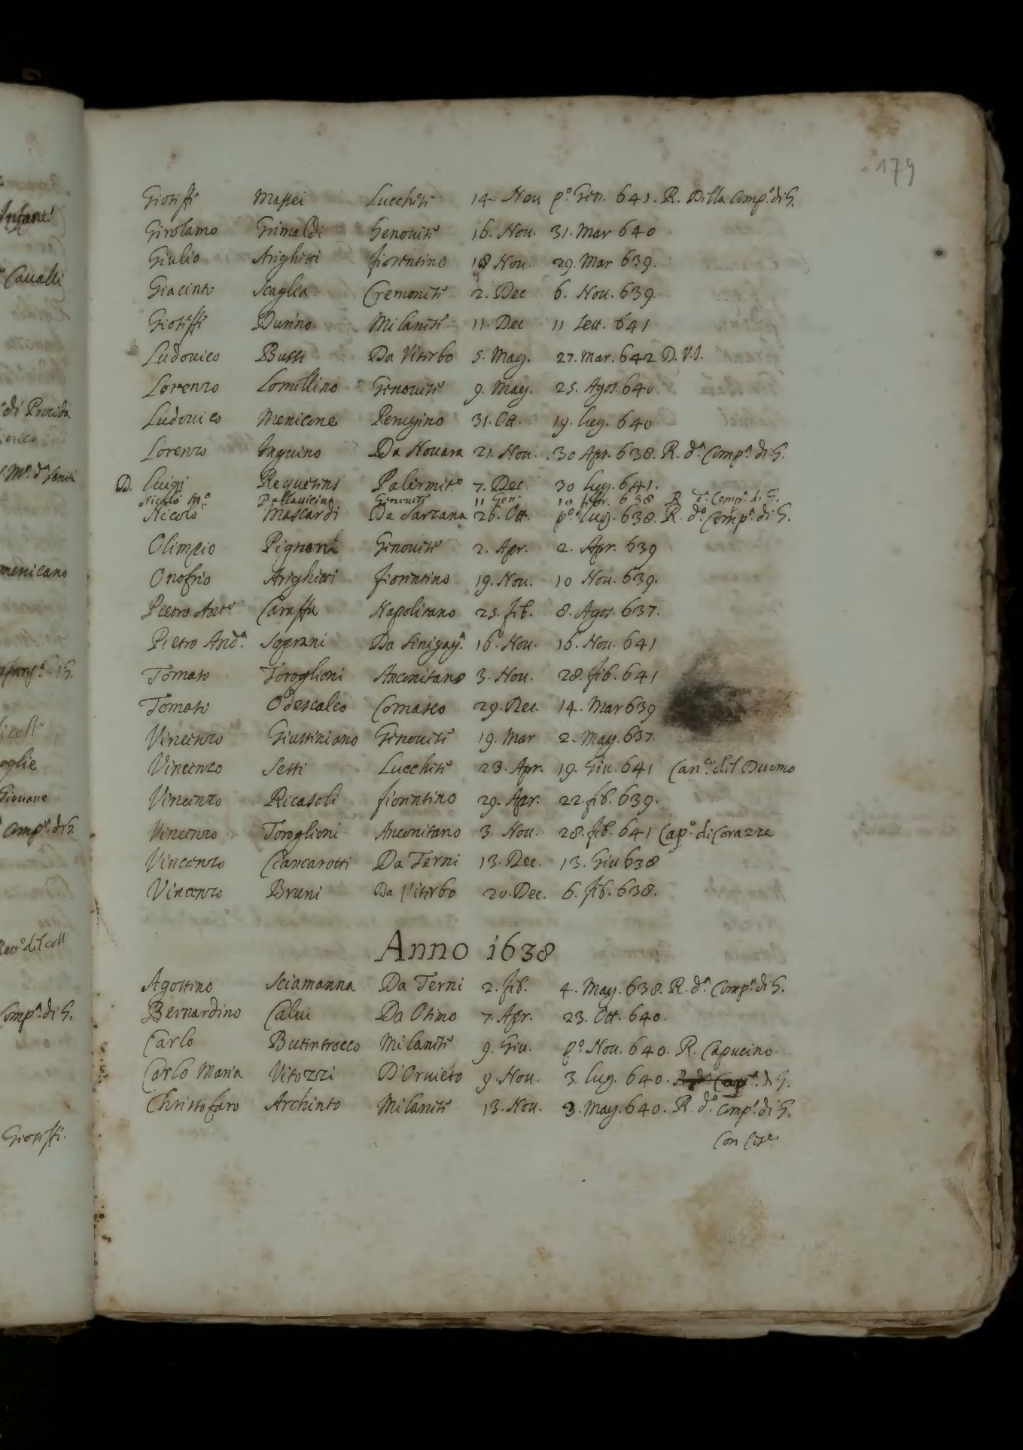 179
Gioseffe Massei Lucchese 14. Nou. pº Gen. 641. R. Della Comp.ª di G.
Girolamo Grimaldi Genouese 16. Nou. 31. Mar 640
Giulio Arighetti fiorentino 18 Nou. 29. Mar 639.
Giacinto Scaglia Cremonese 2. Dec 6. Nou. 639.
Gioseffe Durino Milanese 11. Dec 11 Sett. 641
Ludouico Bussi Da Viterbo 5. May. 27. Mar. 642 D.V.S.
Lorenzo Lomellino Genouese 9. May. 25. Agos. 640.
Ludouico Menicone Perugino 31. Ott. 19. lug. 640
Lorenzo Inguino Da Nouara 21. Nou. 30 Apr. 638. R. d.ª Comp.ª di G.
D. Luigi Requesens Palermit.º 7. Dec. 30 lug. 641.
Nicolò Mª Pallauicino Genouese 11 Gen. 10 Apr. 638 R. dª Comp.ª di G.
Nicolò Mascardi Da Sarzana 26. Ott. pº lug. 638. R. dª Comp.ª di G.
Olimpio Genouese 2. Apr. 2. Apr. 639
Onofrio Arighetti fiorentino 19. Nou. 10 Nou. 639.
Pietro Antº Caraffa Napolitano 25. feb. 8. Agos. 637.
Pietro And.ª Soprani Da Sinigag.ª 16. Nou. 16. Nou. 641
Tomaso Toroglioni Anconitano 3. Nou. 28. feb. 641
Tomaso Odescalco Comasco 29. Dec. 14. Mar 639
Vincenzo Giustiniano Genouese 19. Mar 2. May. 637.
Vincenzo Setti Lucchese 23. Apr. 19. Giu. 641 Can.co del Duomo
Vincenzo Ricasoli fiorentino 29. Apr. 22. feb. 639.
Vincenzo Toroglioni Anconitano 3. Nou. 28. feb. 641 Cap.º di Corazze
Vincenzo Ciancarotti Da Terni 13. Dec. 13. Giu 638
Vincenzo Bruni Da Viterbo 20. Dec. 6. feb. 638.
Anno 1638
Agostino Sciamanna Da Terni 2. feb. 4. May. 638. R. dª Comp.ª di G.
Bernardino Calui Da Osimo 7. Apr. 23. Ott. 640.
Carlo Milanese 9. Giu. pº Nou. 640. R. Capucino
Carlo Maria Vitozzi D'Oruieto 9. Nou. 3. lug. 640. R. dª di G.
Christofaro Archinto Milanese 13. Nou. 3. May. 640. R. dª Comp.ª di G.